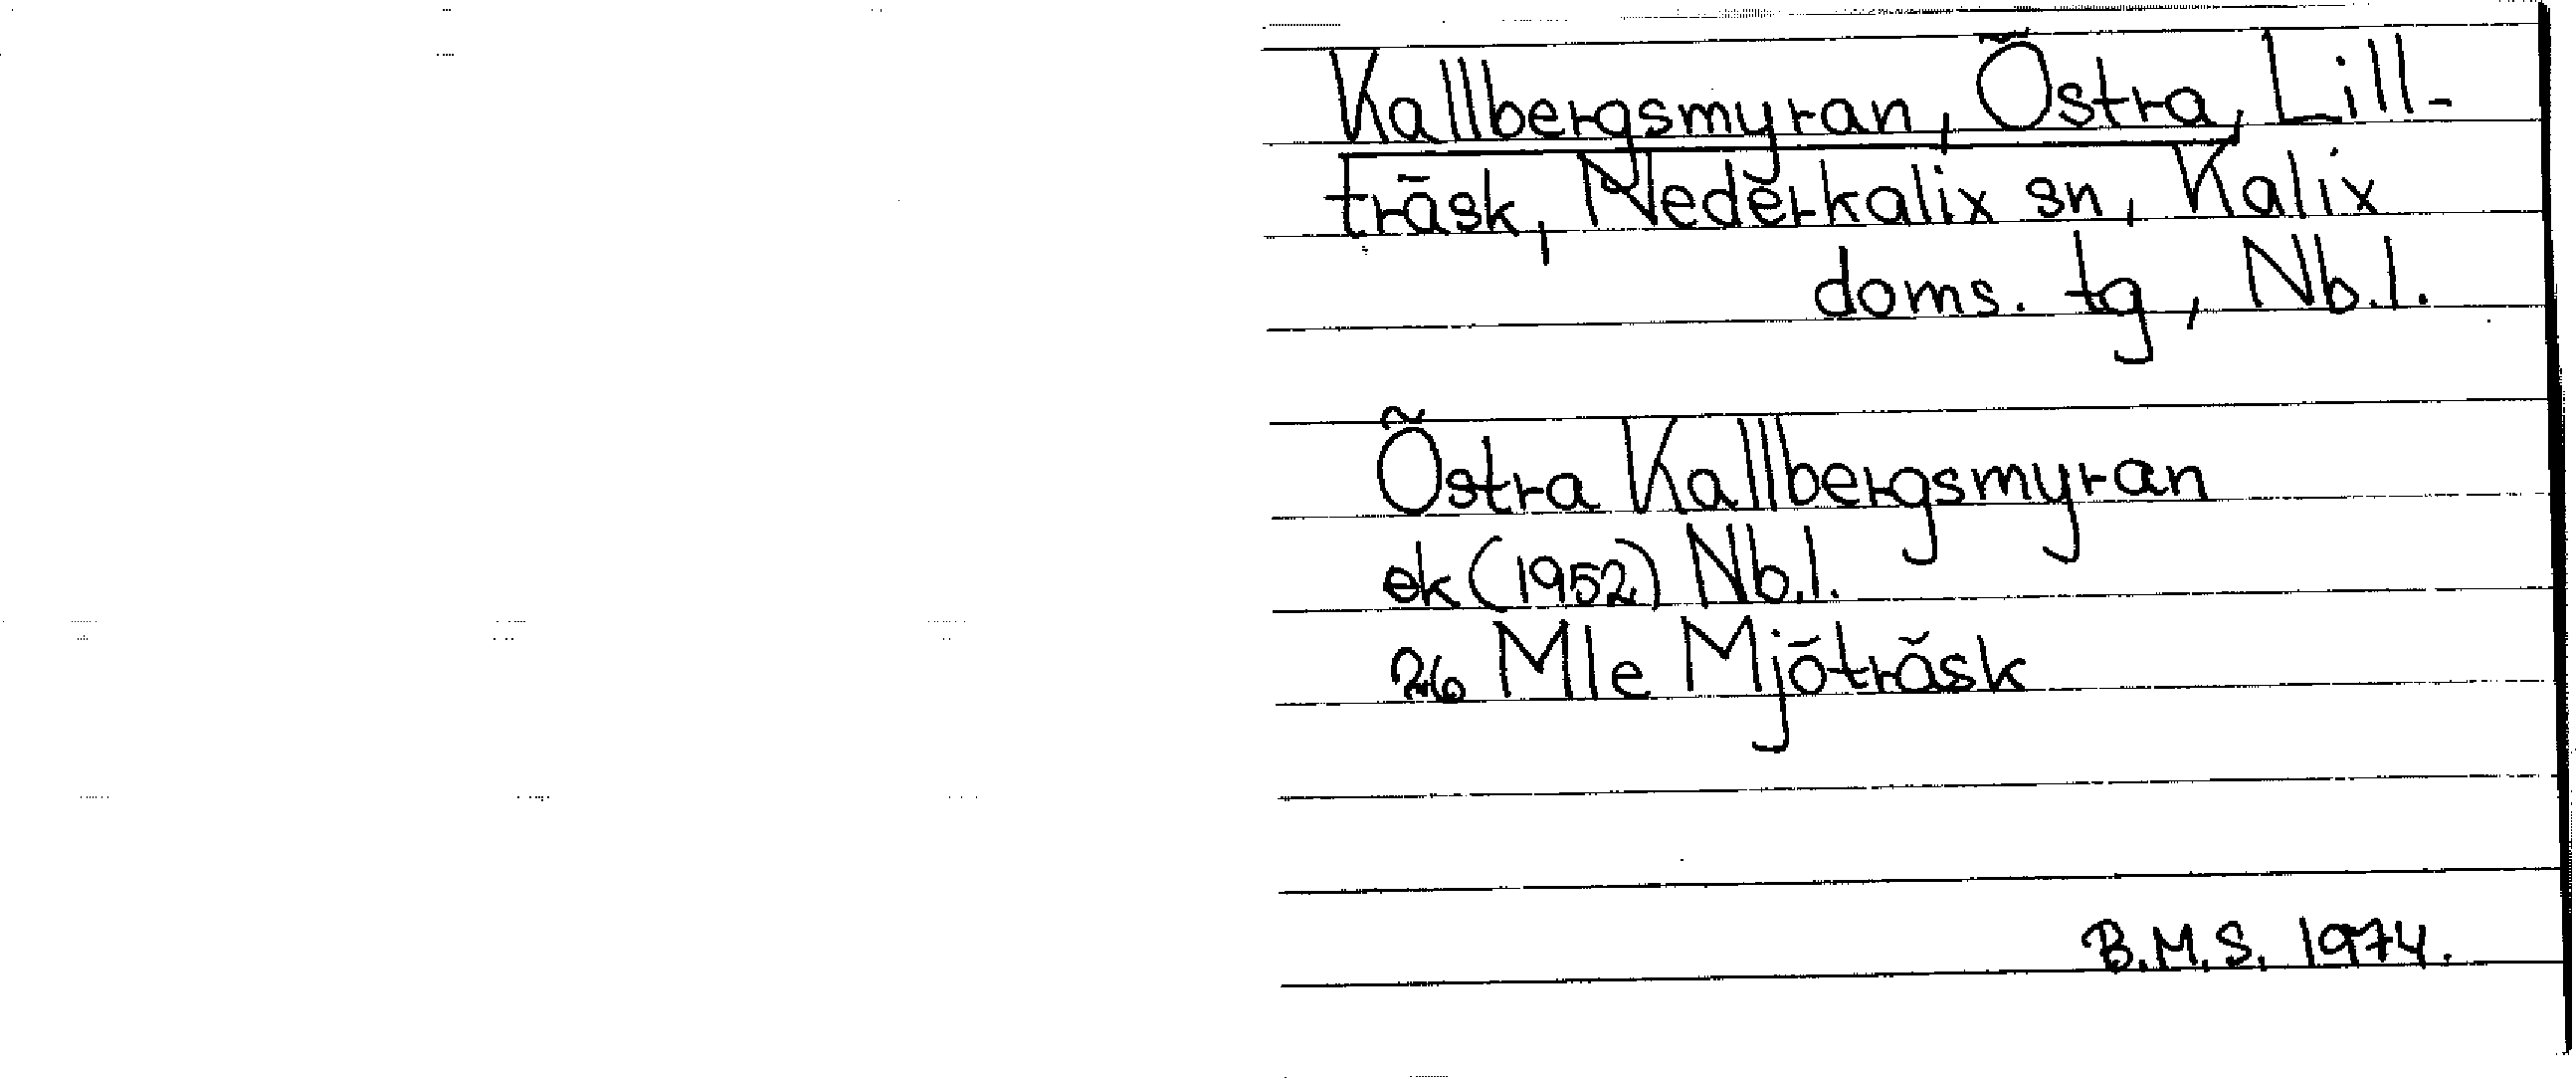 Kallbergsmyran, Östra, Lill-
träsk, Nederkalix sn, Kalix
doms. tg, Nb.l.
Östra Kallbergsmyran
ek (1952) Nb.l.
26 Mle Mjöträsk
B.M.S. 1974.